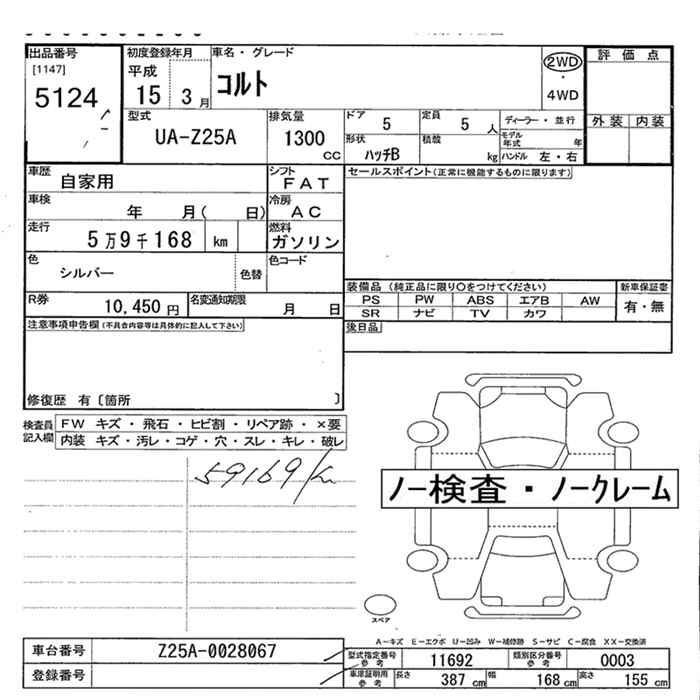 出品番号
[1147]
5124
初度登録年月
平成
15 3 月
車名・グレード
コルト
2WD
・
4WD
評価点
外装 内装
型式
UA-Z25A
排気量
1300
CC
ドア 5
定員 5 人
ディーラー・並行
形状
ハッチB
積載
kg
モデル年式 年
ハンドル 左・右
車歴
自家用
シフト
FAT
セールスポイント(正常に機能するものに限ります)
車検
年 月( 日)
冷房
AC
走行
5万9千168 km
燃料
ガソリン
色
シルバー
色替
色コード
装備品 (純正品に限り○をつけてください)
新車保証書
PS PW ABS エアB AW
SR ナビ TV カワ
有・無
R券
10,450 円
名変通知期限
月 日
後日品
注意事項申告欄(不具合内容等は具体的に記入して下さい)
修復歴 有〔箇所 〕
検査員
記入欄
FW キズ・飛石・ヒビ割・リペア跡・×要
内装 キズ・汚レ・コゲ・穴・スレ・キレ・破レ
59169km
ノー検査・ノークレーム
スペア
A-キズ E-エクボ U-凹み W-補修跡 S-サビ C-腐食 XX-交換済
車台番号
Z25A-0028067
型式指定番号
参考
11692
類別区分番号
参考
0003
登録番号
車庫証明用
参考
長さ
387 cm
幅
168 cm
高さ
155 cm